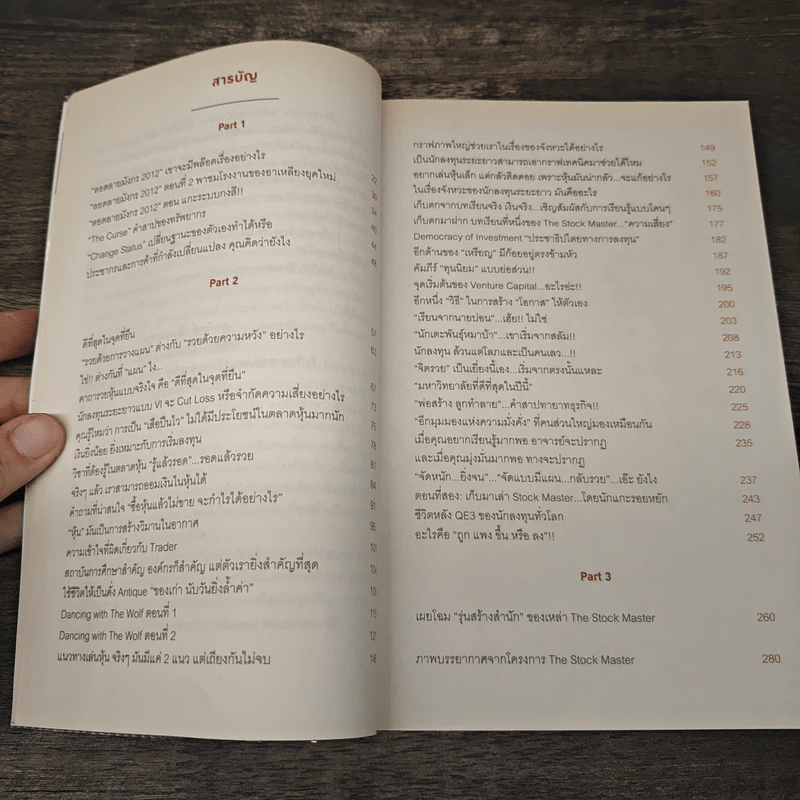 สารบัญ
Part 1
"ลอกลายมังกร 2012" เขาจะมีพล็อตเรื่องอย่างไร 23
"ลอกลายมังกร 2012" ตอนที่ 2 พาชมโรงงานของอาเหลียงยุคใหม่ 30
"ลอกลายมังกร 2012" ตอน แกะระบบกงสี!! 34
"The Curse" คำสาปของทรัพยากร 40
"Change Status" เปลี่ยนฐานะของตัวเองทำได้หรือ 44
ประชากรและการค้าที่กำลังเปลี่ยนแปลง คุณคิดว่ายังไง 48
Part 2
ดีที่สุดในจุดที่ยืน 57
"รวยด้วยการวางแผน" ต่างกับ "รวยด้วยความหวัง" อย่างไร 63
ใช่!! ต่างกันที่ "แผน" ไง...
คาถารวยหุ้นแบบจริงใจ คือ "ดีที่สุดในจุดที่ยืน" 67
นักลงทุนระยะยาวแบบ VI จะ Cut Loss หรือจำกัดความเสี่ยงอย่างไร 73
คุณรู้ไหมว่า การเป็น "เสือปืนไว" ไม่ได้มีประโยชน์ในตลาดหุ้นมากนัก 75
เงินยิ่งน้อย ยิ่งเหมาะกับการเริ่มลงทุน 78
วิชาที่ต้องรู้ในตลาดหุ้น "รู้แล้วรอด"...รอดแล้วรวย 81
จริงๆ แล้ว เราสามารถออมเงินในหุ้นได้ 84
คำถามที่น่าสนใจ "ซื้อหุ้นแล้วไม่ขาย จะกำไรได้อย่างไร" 91
"หุ้น" มันเป็นการสร้างวิมานในอากาศ 95
ความเข้าใจที่ผิดเกี่ยวกับ Trader 101
สถาบันการศึกษาสำคัญ องค์กรก็สำคัญ แต่ตัวเรายิ่งสำคัญที่สุด 104
ใช้ชีวิตให้เป็นดั่ง Antique "ของเก่า นับวันยิ่งล้ำค่า" 109
Dancing with The Wolf ตอนที่ 1 115
Dancing with The Wolf ตอนที่ 2 121
แนวทางเล่นหุ้น จริงๆ มันมีแค่ 2 แนว แต่เถียงกันไม่จบ
กราฟภาพใหญ่ช่วยเราในเรื่องของจังหวะได้อย่างไร 149
เป็นนักลงทุนระยะยาวสามารถเอากราฟเทคนิคมาช่วยได้ไหม 152
อยากเล่นหุ้นเล็ก แต่กลัวติดดอย เพราะหุ้นมันน่ากลัว...จะแก้อย่างไร 157
ในเรื่องจังหวะของนักลงทุนระยะยาว มันคืออะไร 160
เก็บตกจากบทเรียนจริง เงินจริง...เชิญสัมผัสกับการเรียนรู้แบบโดนๆ 175
เก็บตกมาฝาก บทเรียนที่หนึ่งของ The Stock Master..."ความเสี่ยง" 177
Democracy of Investment "ประชาธิปไตยทางการลงทุน" 182
อีกด้านของ "เหรียญ" มีก้อยอยู่ตรงข้ามหัว 187
คัมภีร์ "ทุนนิยม" แบบย่อส่วน!! 192
จุดเริ่มต้นของ Venture Capital...อะไรอ่ะ!! 195
อีกหนึ่ง "วิธี" ในการสร้าง "โอกาส" ให้ตัวเอง 200
"เรียนจากนายบ่อน"...เฮ้ย!! ไม่ใช่ 203
"นักเตะพันธุ์หมาบ้า"...เขาเริ่มจากสลัม!! 208
นักลงทุน ล้วนแต่โลภและเป็นคนเลว...!! 213
"จิตรวย" เป็นเยี่ยงนี้เอง...เริ่มจากตรงนั้นแหละ 216
"มหาวิทยาลัยที่ดีที่สุดในปีนี้" 220
"พ่อสร้าง ลูกทำลาย"...คำสาปทายาทธุรกิจ!! 225
"อีกมุมมองแห่งความมั่งคั่ง" ที่คนส่วนใหญ่มองเหมือนกัน 228
เมื่อคุณอยากเรียนรู้มากพอ อาจารย์จะปรากฏ 235
และเมื่อคุณมุ่งมั่นมากพอ ทางจะปรากฏ
"จัดหนัก...ยิ่งจน"..."จัดแบบมีแผน...กลับรวย"...เอ๊ะ ยังไง 237
ตอนที่สอง: เก็บมาเล่า Stock Master...โดยนักแกะรอยหยัก 243
ชีวิตหลัง QE3 ของนักลงทุนทั่วโลก 247
อะไรคือ "ถูก แพง ขึ้น หรือ ลง"!! 252
Part 3
เผยโฉม "รุ่นสร้างสำนัก" ของเหล่า The Stock Master 260
ภาพบรรยากาศจากโครงการ The Stock Master 280